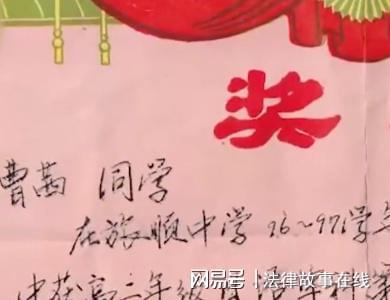 奖
曹茜 同学
在旅顺中学96~97学年
中获高三年级
网易号 | 法律故事在线